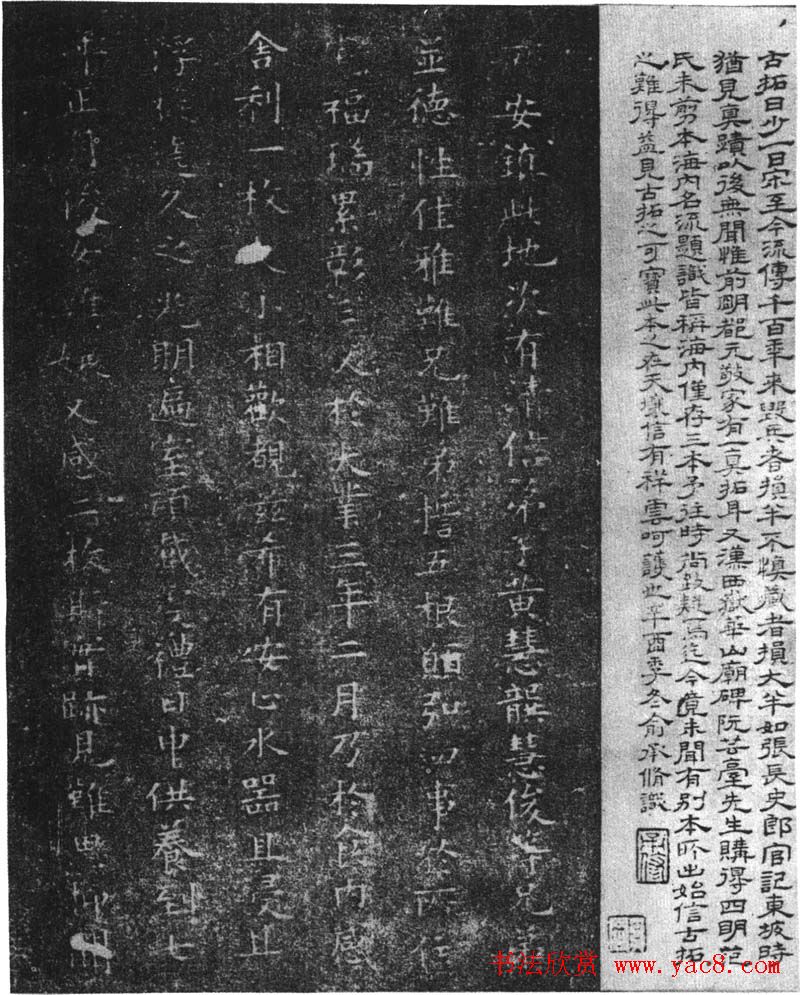 古拓日少一日宋至今流傳千百季來毀兵者損半不慎藏者損大半如張長史郎官記東坡時
猶見真蹟以後無聞惟前明都元敬家有一真拓耳又漢西嶽華山廟碑阮芸臺先生購得四明范
氏未剪本海内名流題識皆稱海内僅存三本予往時尚致疑焉迄今竟未聞有别本所出始信古拓
之難得益見古拓之可寶此本之在天壤信有祥雲呵護也辛酉季冬俞承脩識
安鎮此地次有清信弟子黄慧龍慧俊等兄弟
並德性佳雅難兄難弟 五根 弘四事
福瑞累彰 於大業三年二月乃於食内感
舍利一枚大小相歡觀兹希有安心水器且 且
浮 久之光明遍室而戴 禮日中供養到七
年正 俊 娘又感二枚斯 跡見雖
书法欣赏 www.yac8.com